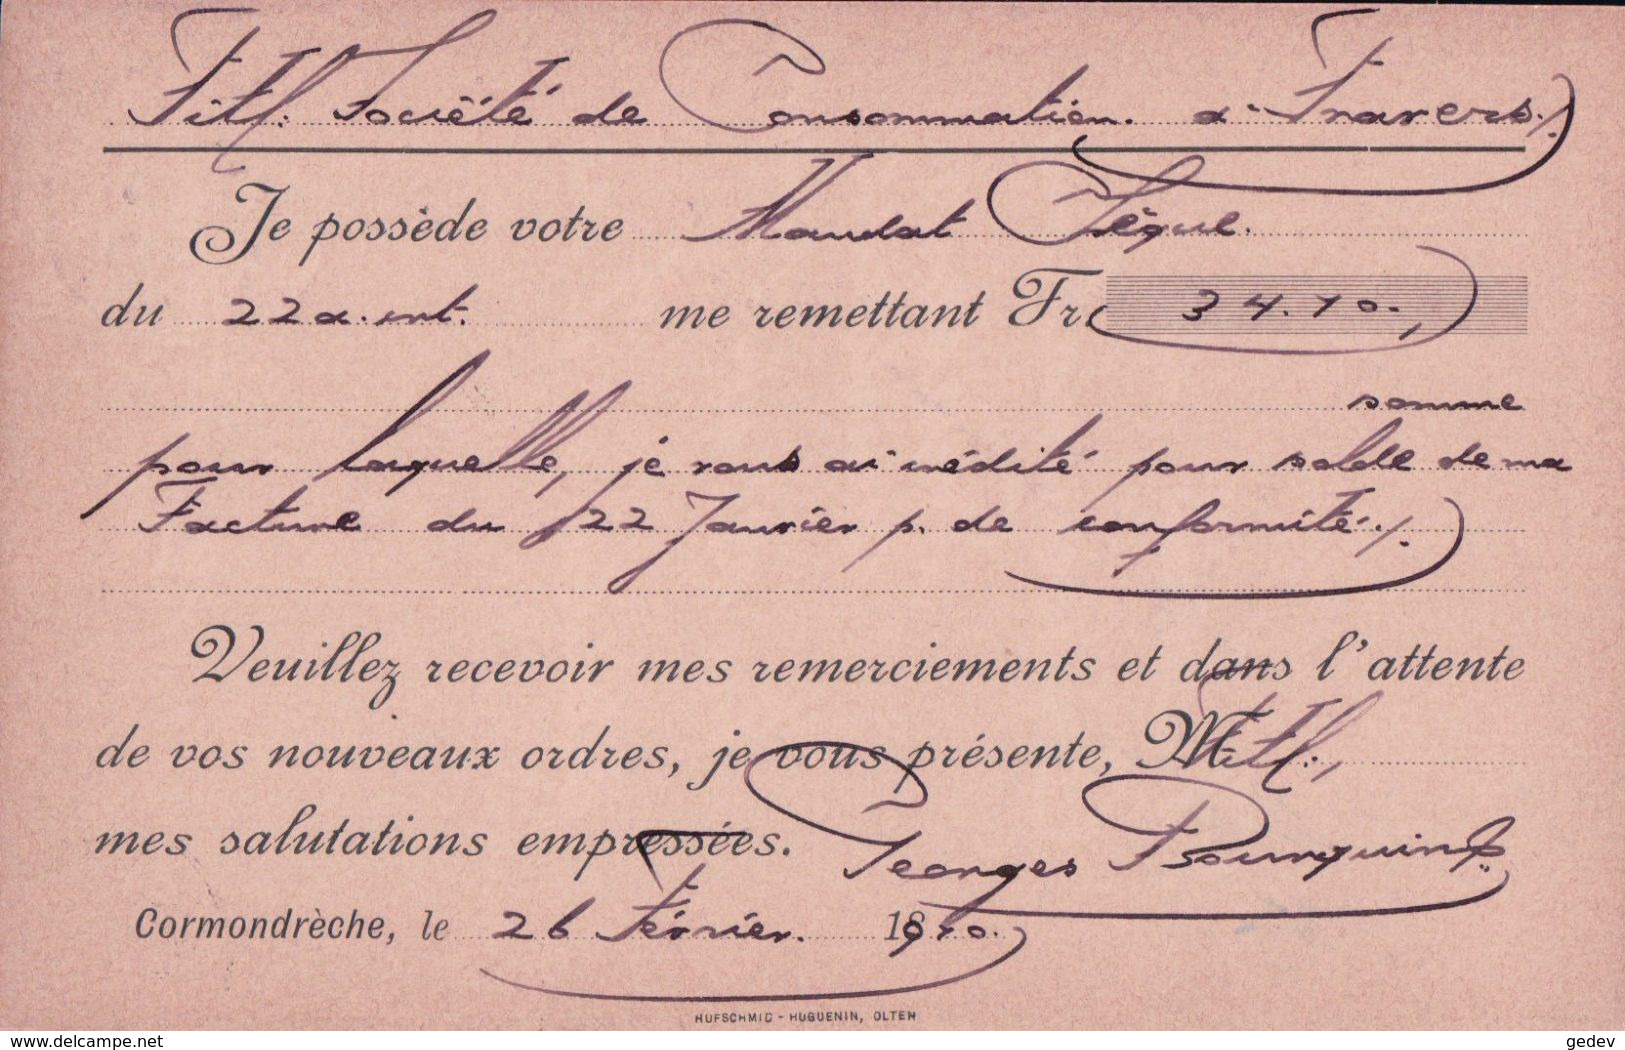 Titl. Société de Consommation. à Travers.
Je possède votre Mandat
du 22 me remettant Fr. 34.10.
somme
pour laquelle, je vous ai crédité pour solde de ma
Facture du 22 Janvier p. de conformité.
Veuillez recevoir mes remerciements et dans l'attente
de vos nouveaux ordres, je vous présente, M Titl.,
mes salutations empressées.
Georges Bourquin
Cormondrèche, le 26 Février. 1910.
HUFSCHMID - HUGUENIN, OLTEN
www.delcampe.net
gedev